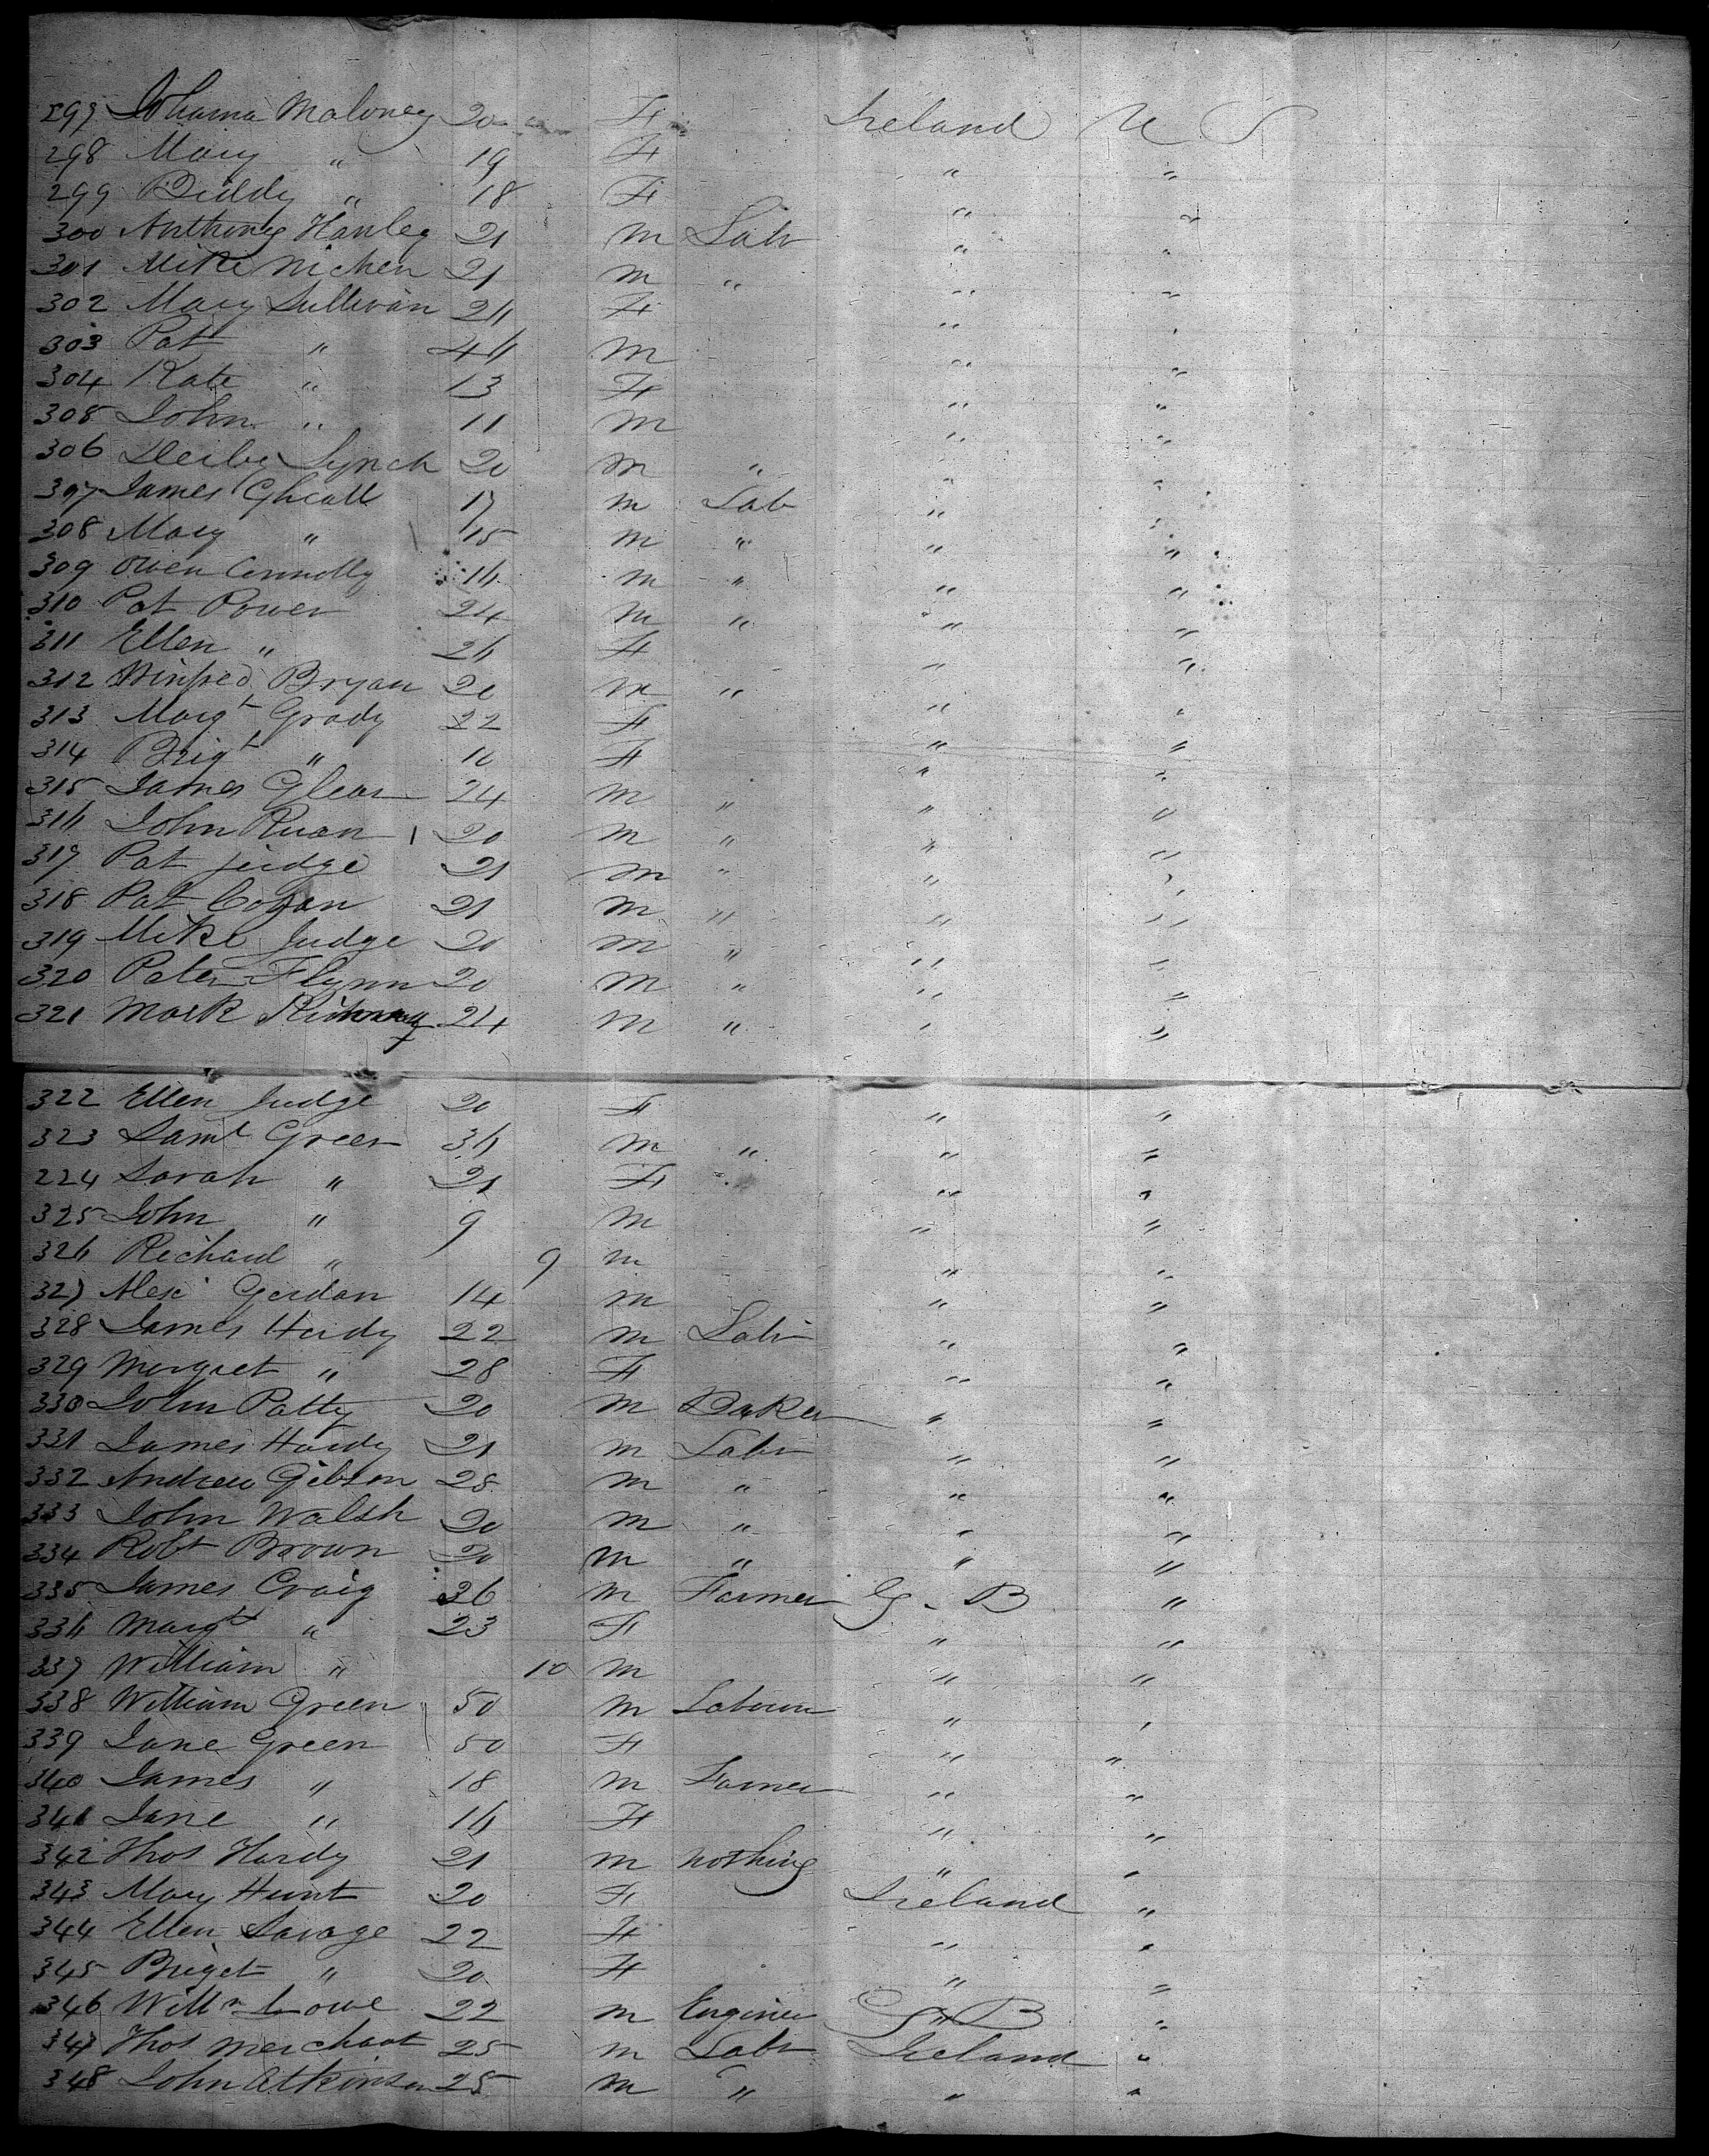 297 Johanna Maloney 20 F Ireland U S
298 Mary " 19 F " "
299 Biddy " 18 F " "
300 Anthony Hanley 21 m Labr " "
301 Mike 21 m " " "
302 Mary Sullivan 26 F " "
303 Pat " 46 m " "
304 Kate " 13 F " "
305 John " 11 m " "
306 Lynch 20 m " " "
307 James 17 m Lab " "
308 Mary " 15 m " " "
309 Owen Connolly 16 m " " "
310 Pat Power 24 m " " "
311 Ellen " 26 F " "
312 Winfred Bryan 20 m " " "
313 Margt Grady 22 F " "
314 Brigt " 10 F " "
315 James Glear 24 m " " "
316 John Ruan 20 m " " "
317 Pat judge 21 m " " "
318 Pat Cogan 21 m " " "
319 Mike Judge 20 m " " "
320 Peter Flynn 20 m " " "
321 Mark 24 m " " "
322 Ellen Judge 20 F " "
323 Saml Green 36 m " " "
224 Sarah " 21 F " "
325 John " 9 m " "
326 Richard " 9 m " "
327 Alex Gordon 14 m " "
328 James Hardy 22 m Labr " "
329 Margret " 28 F " "
330 John Patty 20 m Baker " "
331 James Hardy 21 m Labr " "
332 Andrew Gibson 28 m " " "
333 John Walsh 20 m " " "
334 Robt Brown 20 m " " "
335 James Craig 26 m Farmer G - B "
336 Margt " 23 F " "
337 William " 10 m " "
338 William Green 50 m Labour " "
339 Jane Green 50 F " "
340 James " 18 m Farmer " "
341 Jane " 16 F " "
342 Thos Hardy 21 m nothing " "
343 Mary Hunt 20 F Ireland "
344 Ellen Savage 22 F " "
345 Briget " 20 F " "
346 Willm Lowe 22 m Enginer G B "
347 Thos merchant 25 m Labr Ireland "
348 John Atkinson 25 m " " "